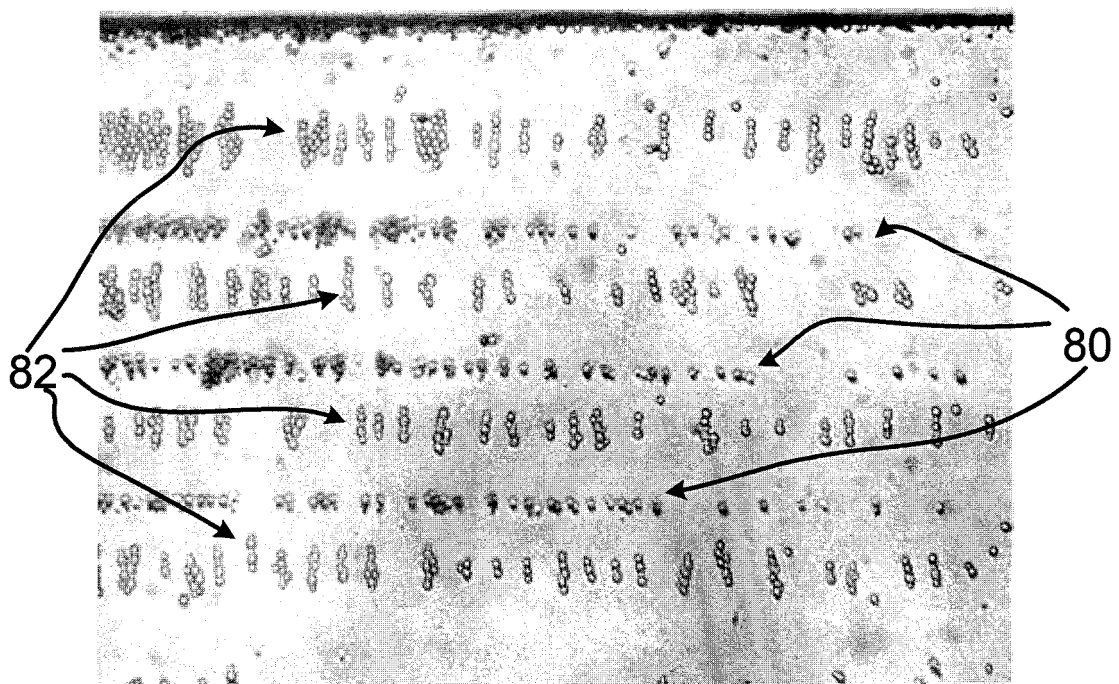 82
80